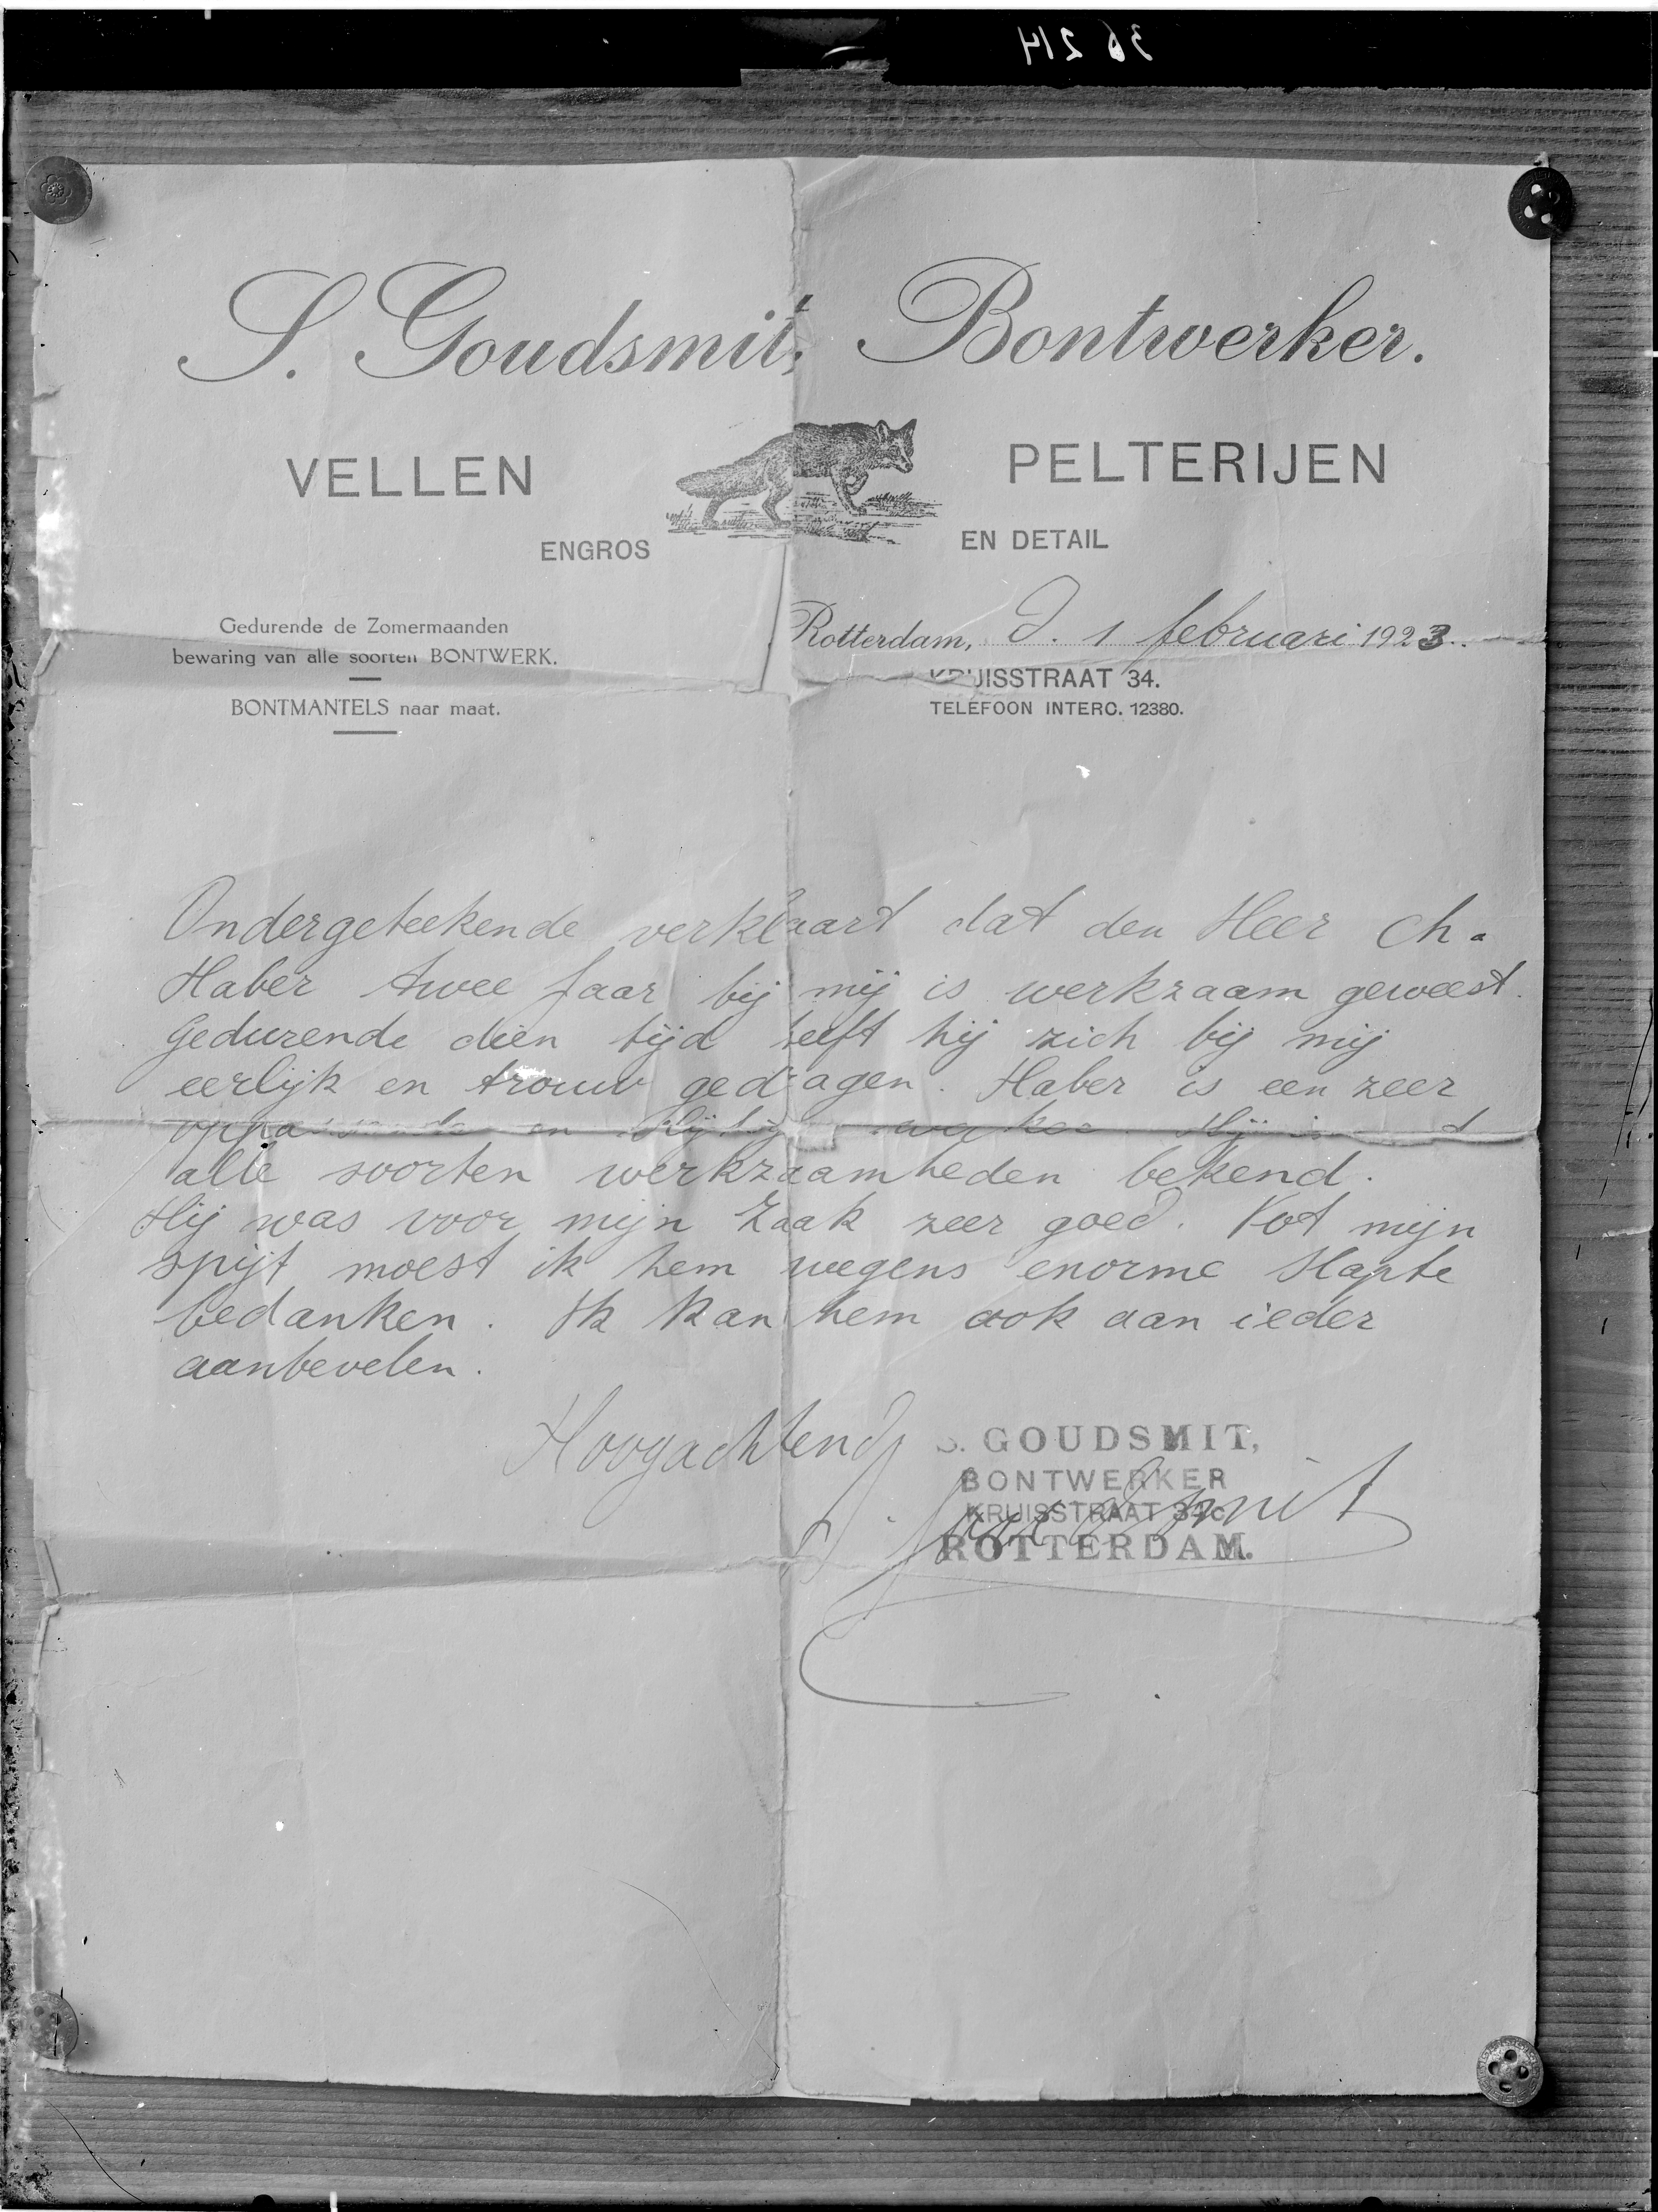 36 214
S. Goudsmit, Bontwerker.
VELLEN PELTERIJEN
ENGROS EN DETAIL
Gedurende de Zomermaanden
bewaring van alle soorten BONTWERK.
BONTMANTELS naar maat.
Rotterdam, d. 1 februari 1923.
KRUISSTRAAT 34.
TELEFOON INTERC. 12380.
Ondergeteekende verklaart dat den Heer Ch.
Haber twee Jaar bij mij is werkzaam geweest.
Gedurende dien tijd heeft hij zich bij mij
eerlijk en trouw gedragen. Haber is een zeer
en Hij is
alle soorten werkzaamheden bekend.
Hij was voor mijn Zaak zeer goed. Tot mijn
spijt moest ik hem wegens enorme Slapte
bedanken. Ik kan hem ook aan ieder
aanbevelen.
Hoogachtend
S. GOUDSMIT,
BONTWERKER
KRUISSTRAAT 34c
ROTTERDAM.